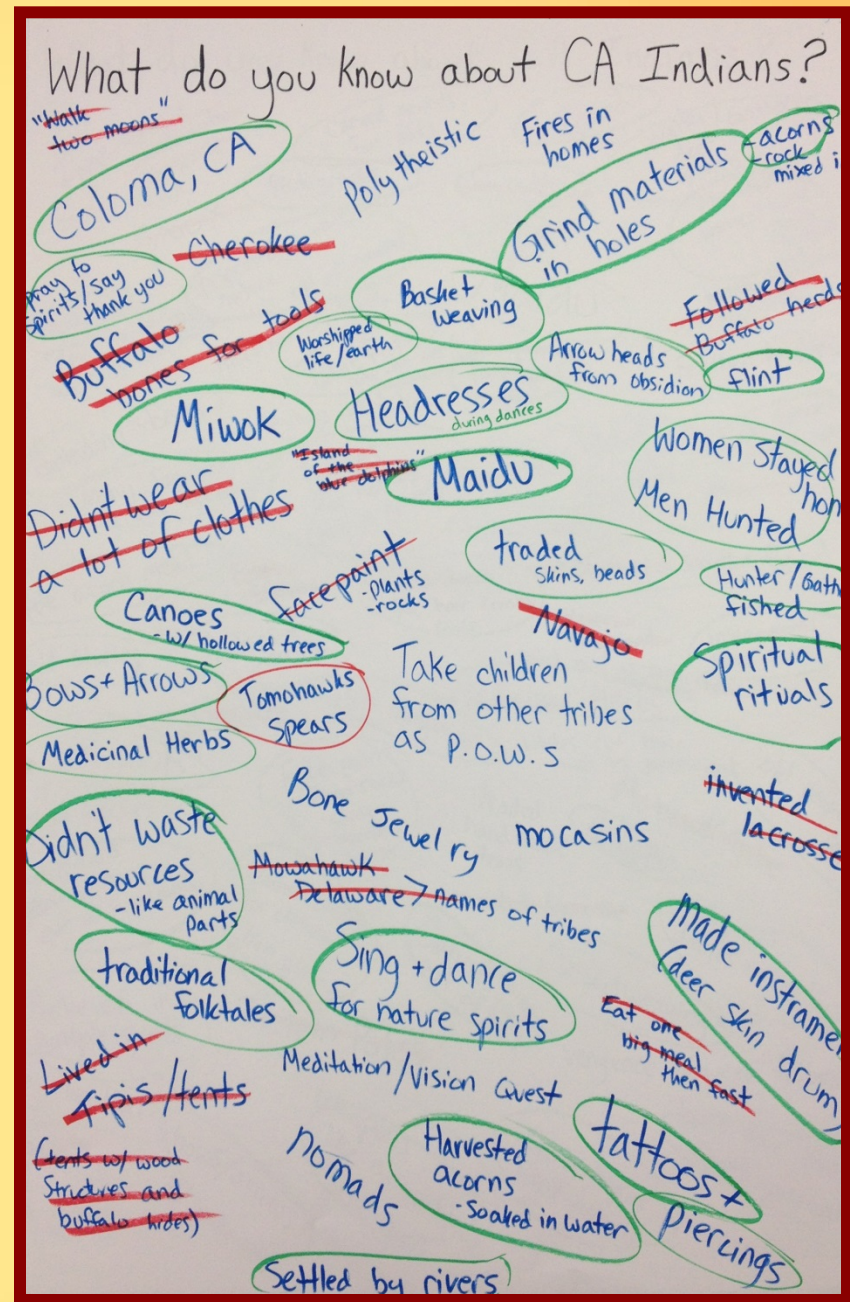 What do you know about CA Indians?
"Walk
two moons"
Coloma, CA
Polytheistic
Fires in
homes
Grind materials
in holes
-acorns
-rock
mixed i
Cherokee
pray to
Spirits/say
thank you
Basket
weaving
Followed
Buffalo herds
Buffalo
bones for tools
Worshipped
life/earth
Arrow heads
from obsidion
flint
Miwok
Headresses
during dances
Women Stayed
hom
Men Hunted
"Island
of the
blue dolphins"
Maidu
Didnt wear
a lot of clothes
traded
skins, beads
facepaint
-plants
-rocks
Hunter/Gath
fished
Canoes
-w/ hollowed trees
Navajo
Spiritual
rituals
Bows + Arrows
Tomohawks
Spears
Take children
from other tribes
as P.O.W.S
Medicinal Herbs
Bone Jewelry
mocasins
invented
lacrosse
Didn't waste
resources
-like animal
parts
Mowahawk
Delaware > names of tribes
Made instrume
(deer skin drum)
traditional
folktales
Sing + dance
for nature spirits
Eat one
big meal
then fast
Lived in
Tipis/tents
Meditation/Vision Quest
(tents w/ wood
Structures and
buffalo hides)
nomads
Harvested
acorns
-Soaked in water
tattoos +
Piercings
Settled by rivers